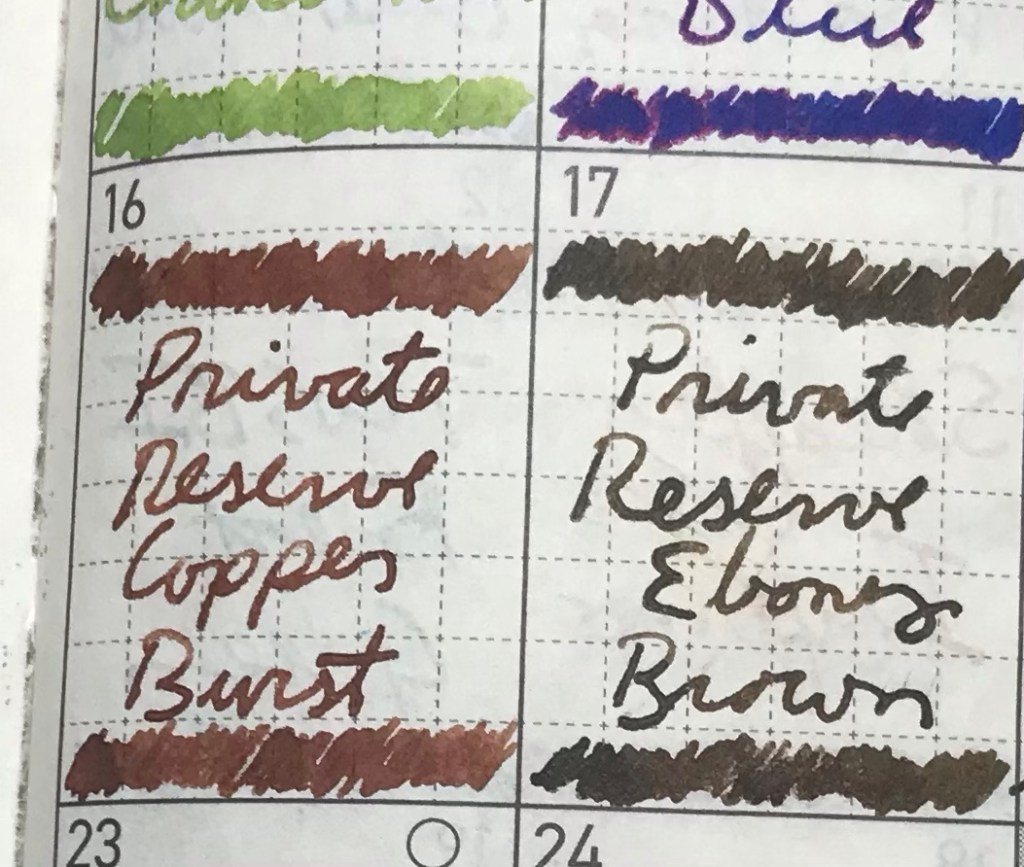 Blue
16
Private
Reserve
Copper
Burst
17
Private
Reserve
Ebony
Brown
23
24